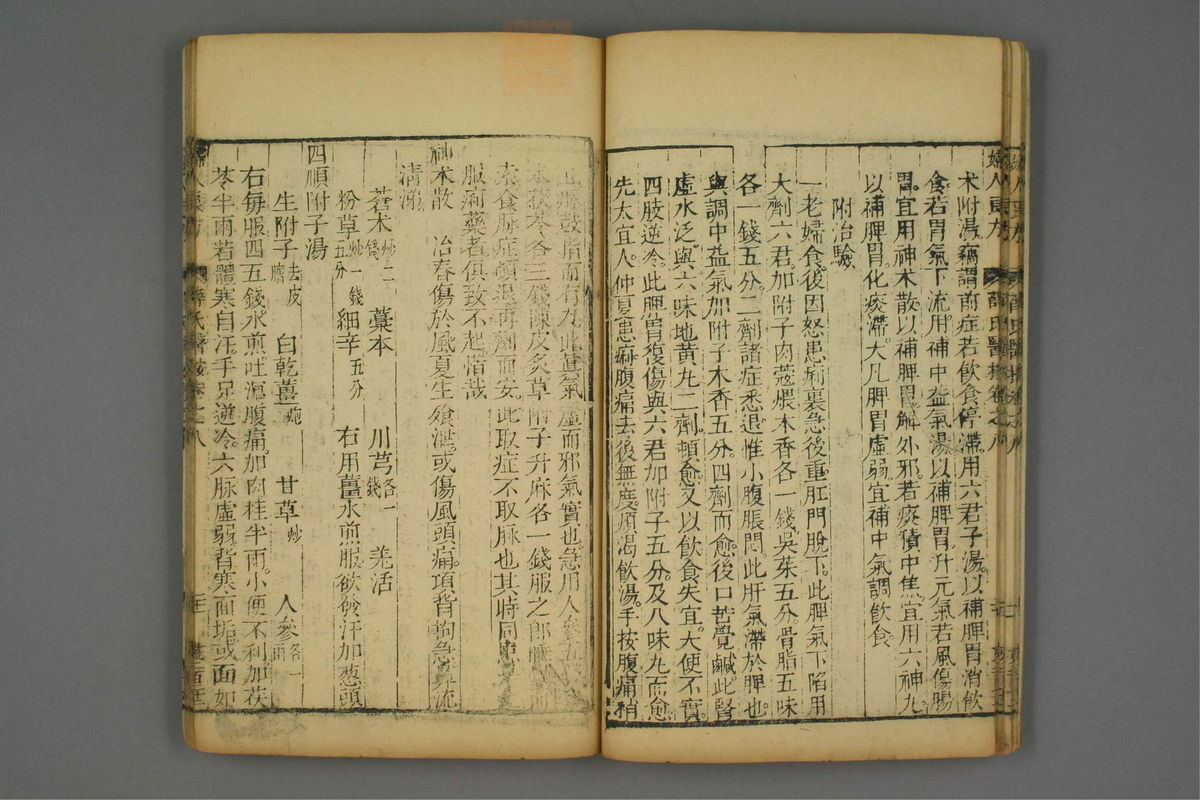 术附湯竊謂前症若飲食停滯用六君子湯以補脾胃消飲
食若胃氣下流用補中益氣湯以補脾胃升元氣若風傷腸
胃宜用神术散以補脾胃解外邪若痰積中焦宜用六神丸
以補脾胃化痰滯大凡脾胃虛弱宜補中氣調飲食
附治驗
一老婦食後因怒患痢裏急後重肛門脫下此脾氣下陷用
大劑六君加附子肉蔻煨木香各一錢吳茱五分骨脂五味
各一錢五分二劑諸症悉退惟小腹脹悶此肝氣滯於脾也
與調中益氣加附子木香五分四劑而愈後口苦覺鹹此腎
虛水泛與六味地黄丸二劑頓愈又以飲食失宜大便不實
四肢逆冷此脾胃復傷與六君加附子五分及八味丸而愈
先太宜人仲夏患痳腹痛去後無度頃渴飲湯手按腹痛稍
止脉鼓指而有力此真氣虛而邪氣實也急用人參五錢
术茯苓各三錢陳皮炙草附子升麻各一錢服之即睡
索食脉症頓退再劑而安此取症不取脉也其時同
服痢藥者俱致不起惜哉
神术散 治春傷於風夏生飱泄或傷風頭痛項背拘急鼻流
清涕
蒼术炒二錢 藁本 川芎各一錢 羌活
粉草炒一錢五分 細辛五分 右用薑水煎服欲發汗加葱頭
四順附子湯
生附子去皮臍 白乾薑炮 甘草炒 人參各一兩
右每服四五錢水煎吐瀉腹痛加肉桂半兩小便不利加茯
苓半兩若體寒自汗手足逆冷六脉虛弱背寒面垢或面如
婦人良方 薛氏醫按卷之八